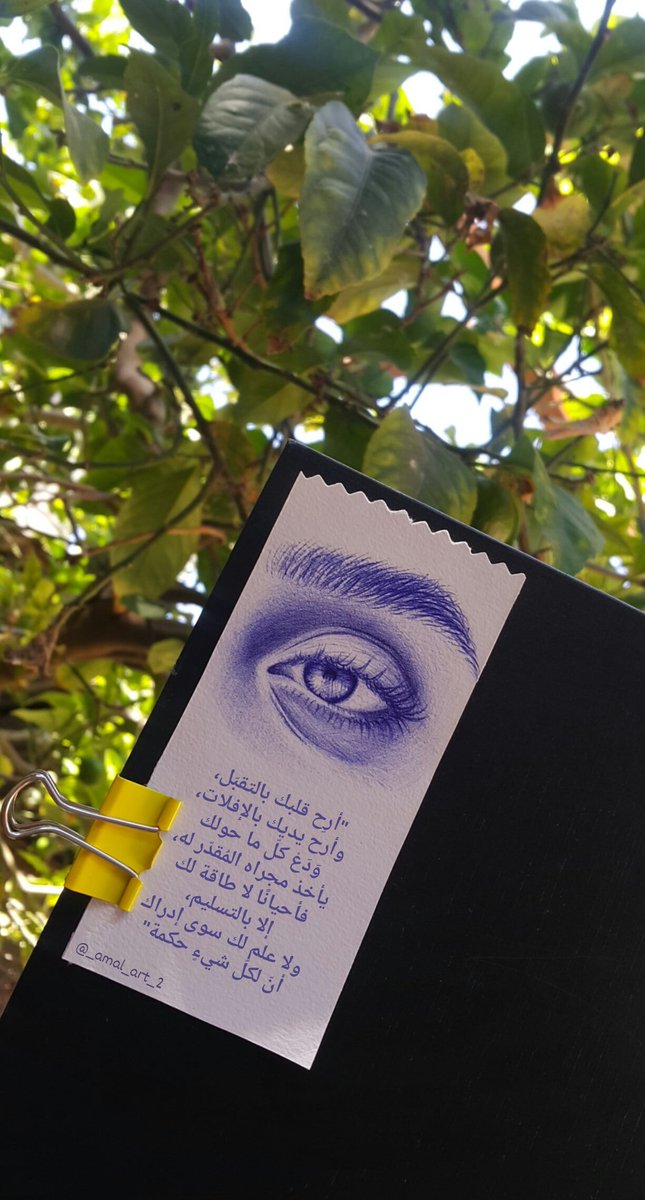 "أرِح قلبك بالتقبّل،
وأرح يديك بالإفلات،
وَدَعْ كلّ ما حولك
يأخذ مجراه المُقدّر له،
فأحيانًا لا طاقة لك
إلا بالتسليم،
ولا علم لك سوى إدراك
أنّ لكلّ شيءٍ حكمة"
@_amal_art_2